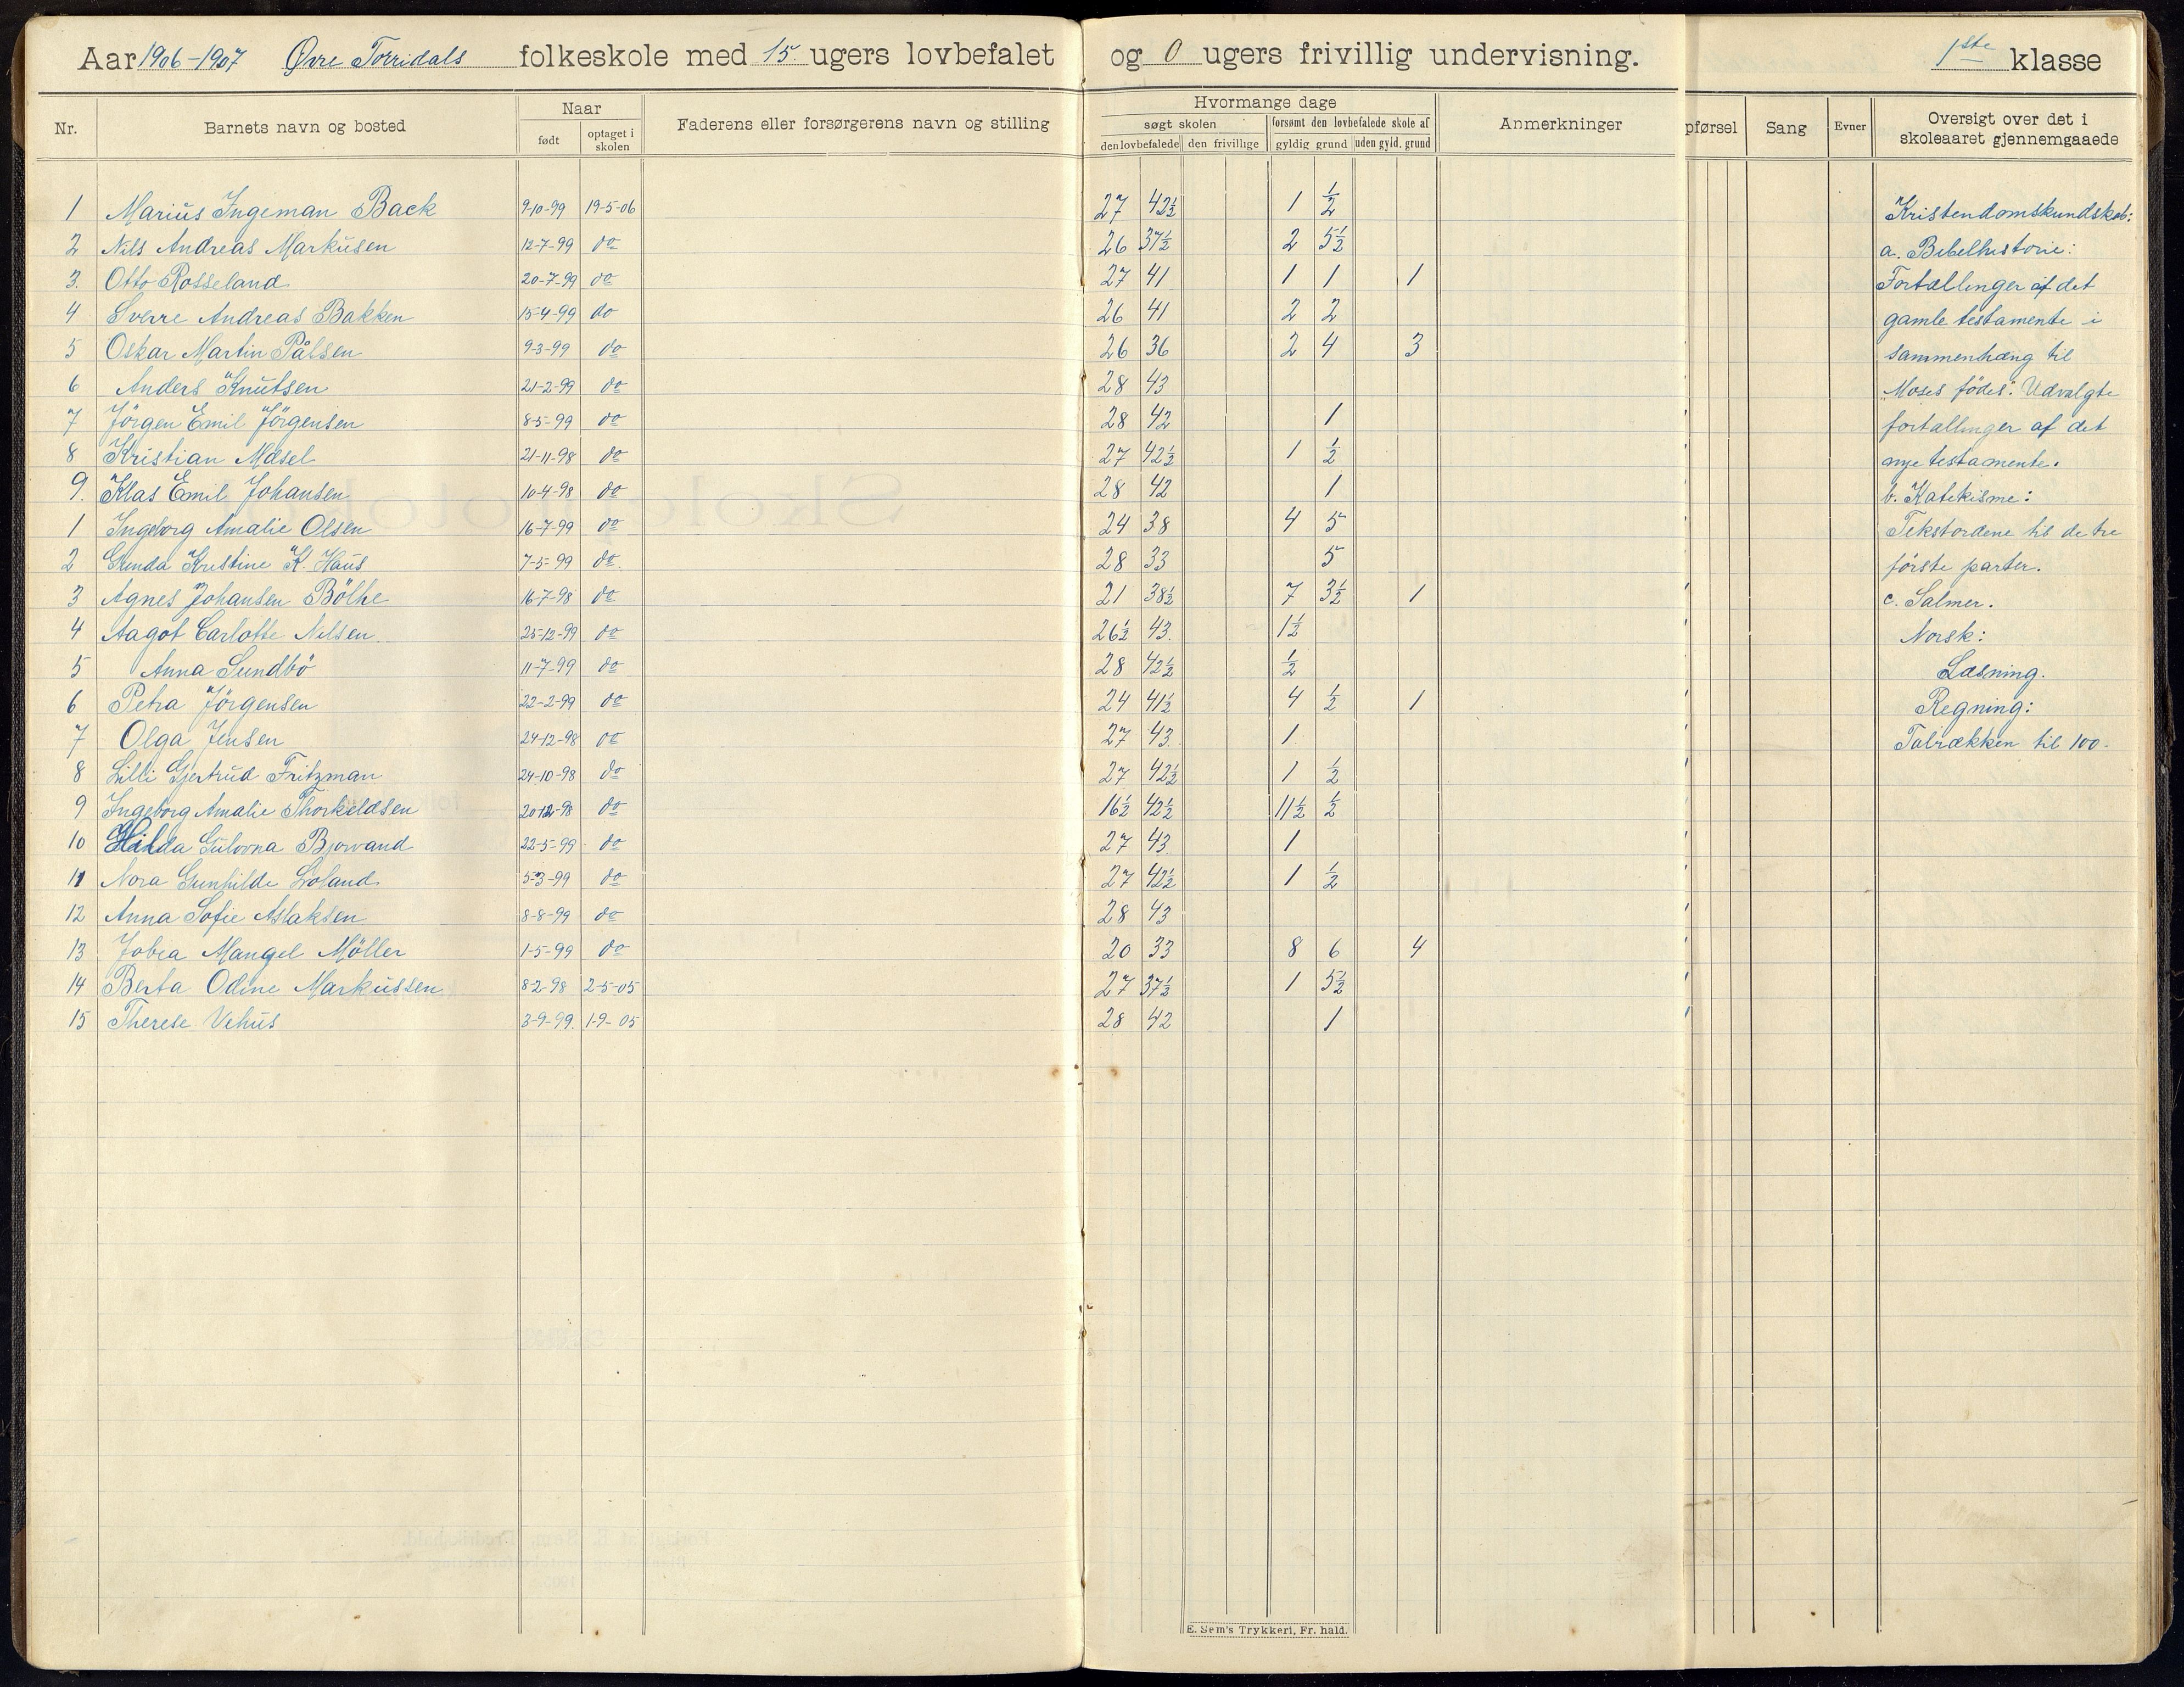 Aar 1906-1907 Øvre Torridals folkeskole med 15 ugers lovbefalet og 0 ugers frivillig undervisning. 1ste klasse
Nr. Barnets navn og bosted Naar født optaget i skolen Faderens eller forsørgerens navn og stilling
Hvormange dage søgt skolen den lovbefalede den frivillige forsømt den lovbefalede skole af gyldig grund uden gyld. grund Anmerkninger
pførsel Sang Evner Oversigt over det i skoleaaret gjennemgaaede
1 Marius Ingeman Back 9-10-99 19-5-06 27 42½ 1 ½
2 Nils Andreas Markusen 12-7-99 do 26 37½ 2 5½
3. Otto Rosseland 20-7-99 do 27 41 1 1 1
4 Sverre Andreas Bakken 15-4-99 do 26 41 2 2
5 Oskar Martin Pålsen 9-3-99 do 26 36 2 4 3
6 Anders Knutsen 21-2-99 do 28 43
7 Jörgen Emil Jörgensen 8-5-99 do 28 42 1
8 Kristian Mæsel 21-11-98 do 27 42½ 1 ½
9. Klas Emil Johansen 10-4-98 do 28 42 1
1 Ingeborg Amalie Olsen 16-7-99 do 24 38 4 5
2 Gunda Kristine K. Haus 7-5-99 do. 28 33 5
3 Agnes Johansen Bölhe 16-7-98 do 21 38½ 7 3½ 1
4 Aagot Carlotte Nilsen 25-12-99 do 26½ 43. 1½
5 Anna Sundbö 11-7-99 do 28 42½ ½
6 Petra Jörgensen 22-2-99 do 24 41½ 4 ½ 1
7 Olga Jensen 24-12-98 do 27 43. 1
8 Lilli Gjertrud Fritzman 24-10-98 do 27 42½ 1 ½
9 Ingeborg Amalie Thorkeldsen 20-12-98 do 16½ 42½ 11½ ½
10 Hilda Gulovna Bjorvand 22-5-99 do 27 43 1
11 Nora Gunhilde Loland. 5-3-99 do 27 42½ 1 ½
12 Anna Sofie Aslaksen 8-8-99 do 28 43
13 Jobea Mangel Möller 1-5-99 do 20 33 8 6 4
14 Berta Odine Markussen 8-2-98 2-5-05 27 37½ 1 5½
15 Therese Vehus 3-9-99. 1-9-05 28 42 1
Kristendomskundskab:
a. Bibelhistorie:
Fortællinger af det
gamle testamente i
sammenhæng til
"Moses födes". Udvalgte
fortællinger af det
nye testamente.
b. Katekisme:
Tekstordene til de tre
förste parter.
c. Salmer.
Norsk:
Læsning.
Regning:
Talrækken til 100.
E. Sem's Trykkeri, Fr. hald.